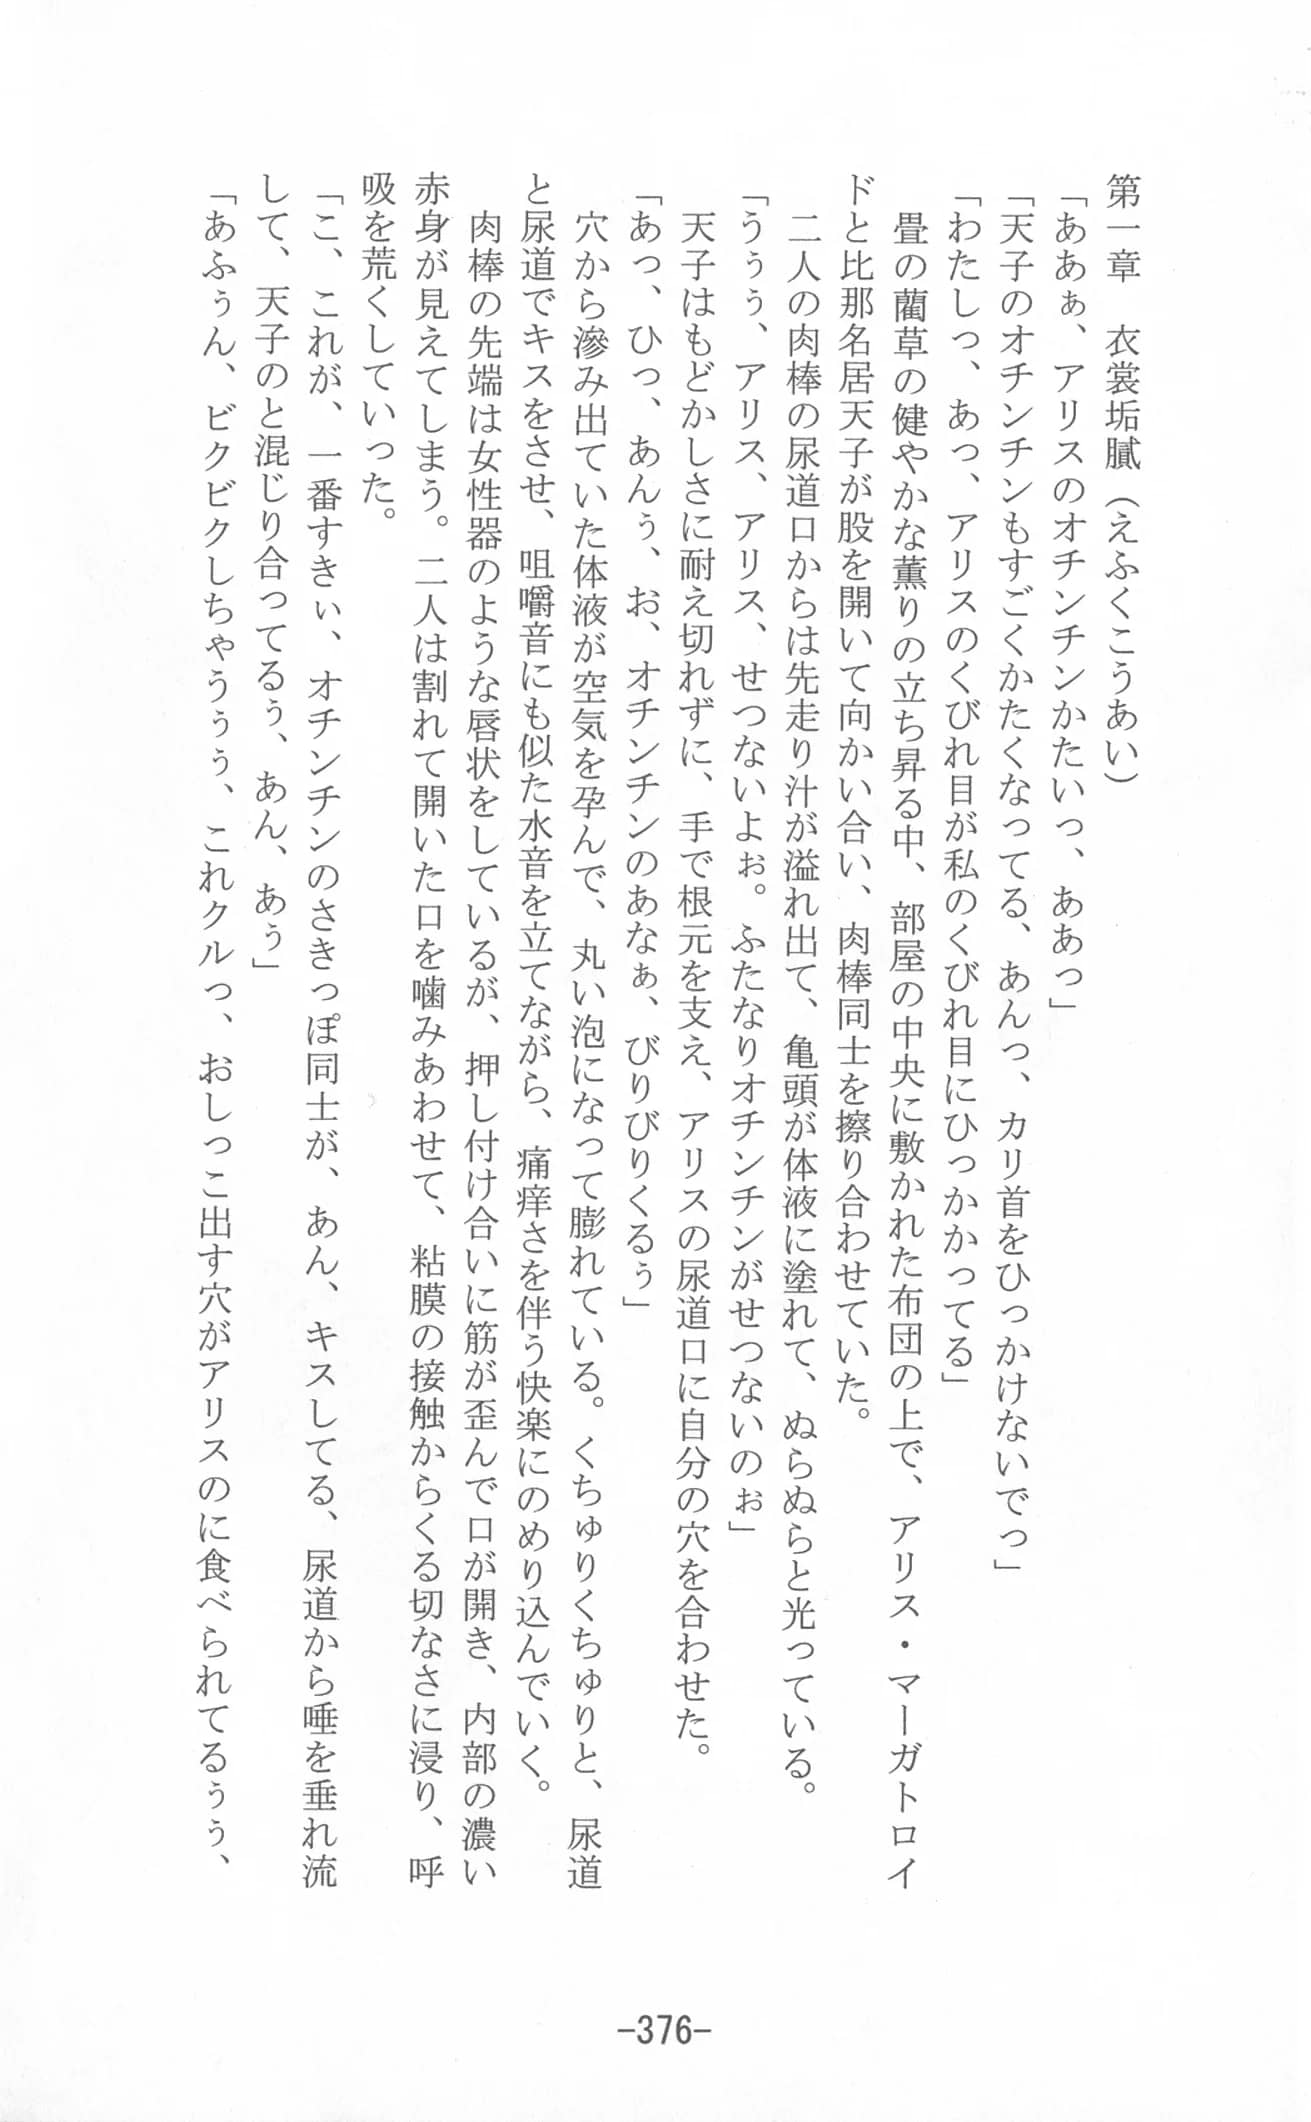 第一章　衣裳垢膩（えふくこうあい）
「ああぁ、アリスのオチンチンかたいっ、ああっ」
「天子のオチンチンもすごくかたくなってる、あんっ、カリ首をひっかけないでっ」
「わたしっ、あっ、アリスのくびれ目が私のくびれ目にひっかかってる」
　畳の藺草の健やかな薫りの立ち昇る中、部屋の中央に敷かれた布団の上で、アリス・マーガトロイ
ドと比那名居天子が股を開いて向かい合い、肉棒同士を擦り合わせていた。
　二人の肉棒の尿道口からは先走り汁が溢れ出て、亀頭が体液に塗れて、ぬらぬらと光っている。
「うぅぅ、アリス、アリス、せつないよぉ。ふたなりオチンチンがせつないのぉ」
　天子はもどかしさに耐え切れずに、手で根元を支え、アリスの尿道口に自分の穴を合わせた。
「あっ、ひっ、あんぅ、お、オチンチンのあなぁ、びりびりくるぅ」
　穴から滲み出ていた体液が空気を孕んで、丸い泡になって膨れている。くちゅりくちゅりと、尿道
と尿道でキスをさせ、咀嚼音にも似た水音を立てながら、痛痒さを伴う快楽にのめり込んでいく。
　肉棒の先端は女性器のような唇状をしているが、押し付け合いに筋が歪んで口が開き、内部の濃い
赤身が見えてしまう。二人は割れて開いた口を噛みあわせて、粘膜の接触からくる切なさに浸り、呼
吸を荒くしていった。
「こ、これが、一番すきぃ、オチンチンのさきっぽ同士が、あん、キスしてる、尿道から唾を垂れ流
して、天子のと混じり合ってるぅ、あん、あぅ」
「あふぅん、ビクビクしちゃうぅぅ、これクルっ、おしっこ出す穴がアリスのに食べられてるぅぅ、
-376-